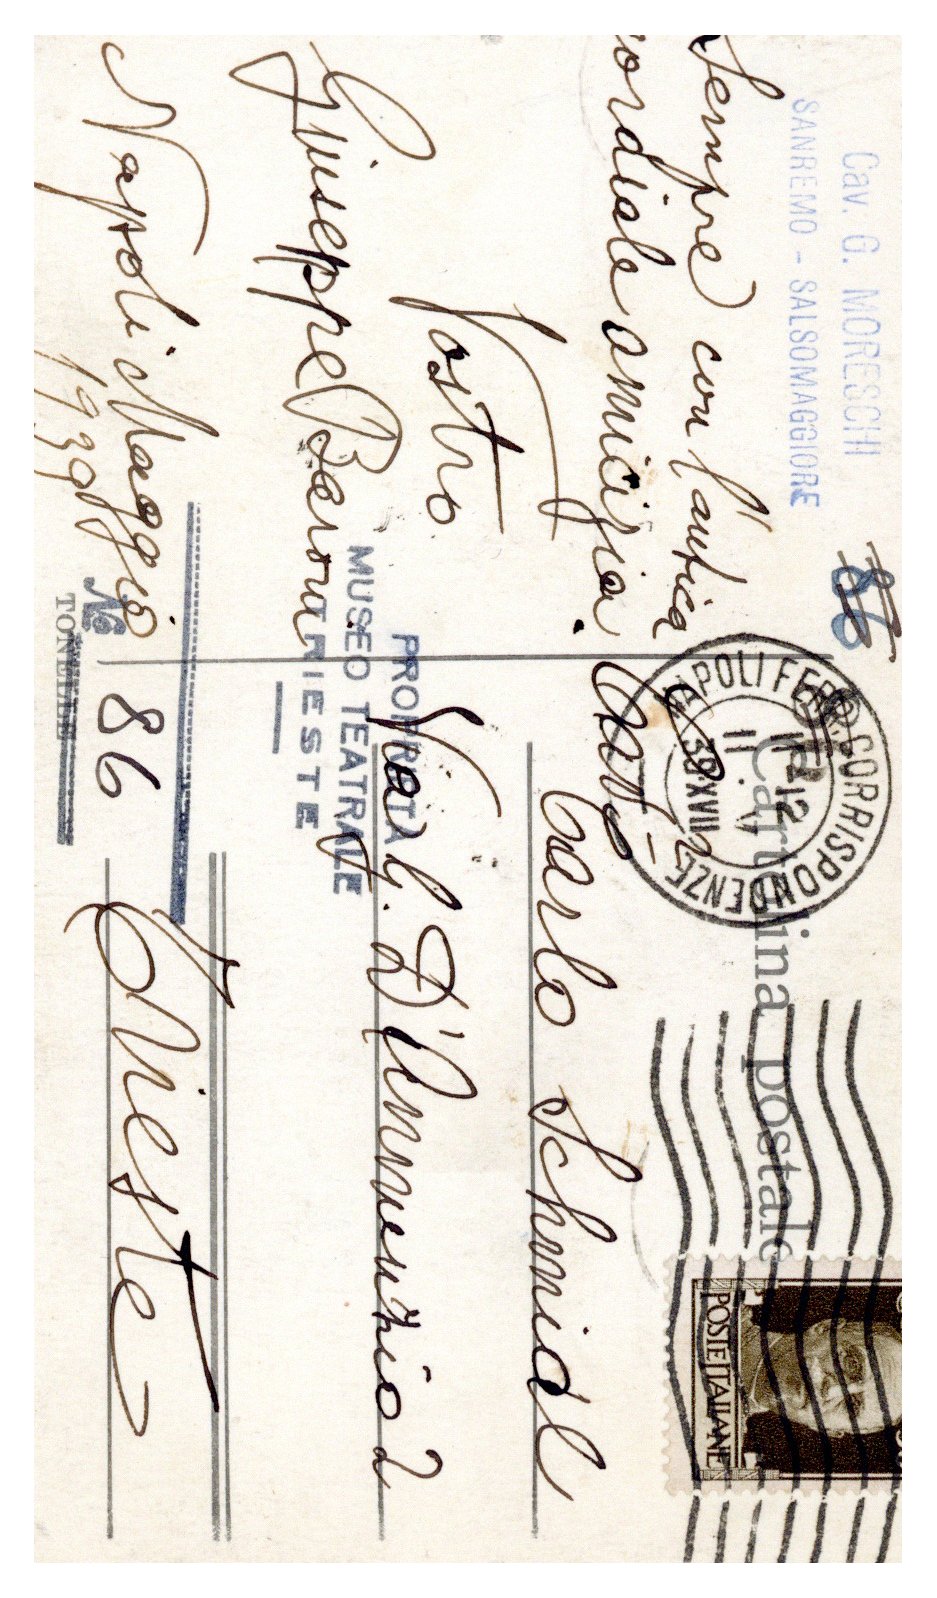 Cav. G. MORESCHI
SANREMO - SALSOMAGGIORE
86
Sempre con l'antica
cordiale amicizia.
Vostro
Giuseppe
Napoli Maggio
1939
NAPOLI FERR. CORRISPONDENZE
11-12
11.V
39 XVII
Cartolina postale
POSTE ITALIANE
Carlo Schmidl
Via G. D'Annunzio 2
Trieste
PROPRIETÀ
MUSEO TEATRALE
TRIESTE
No 86